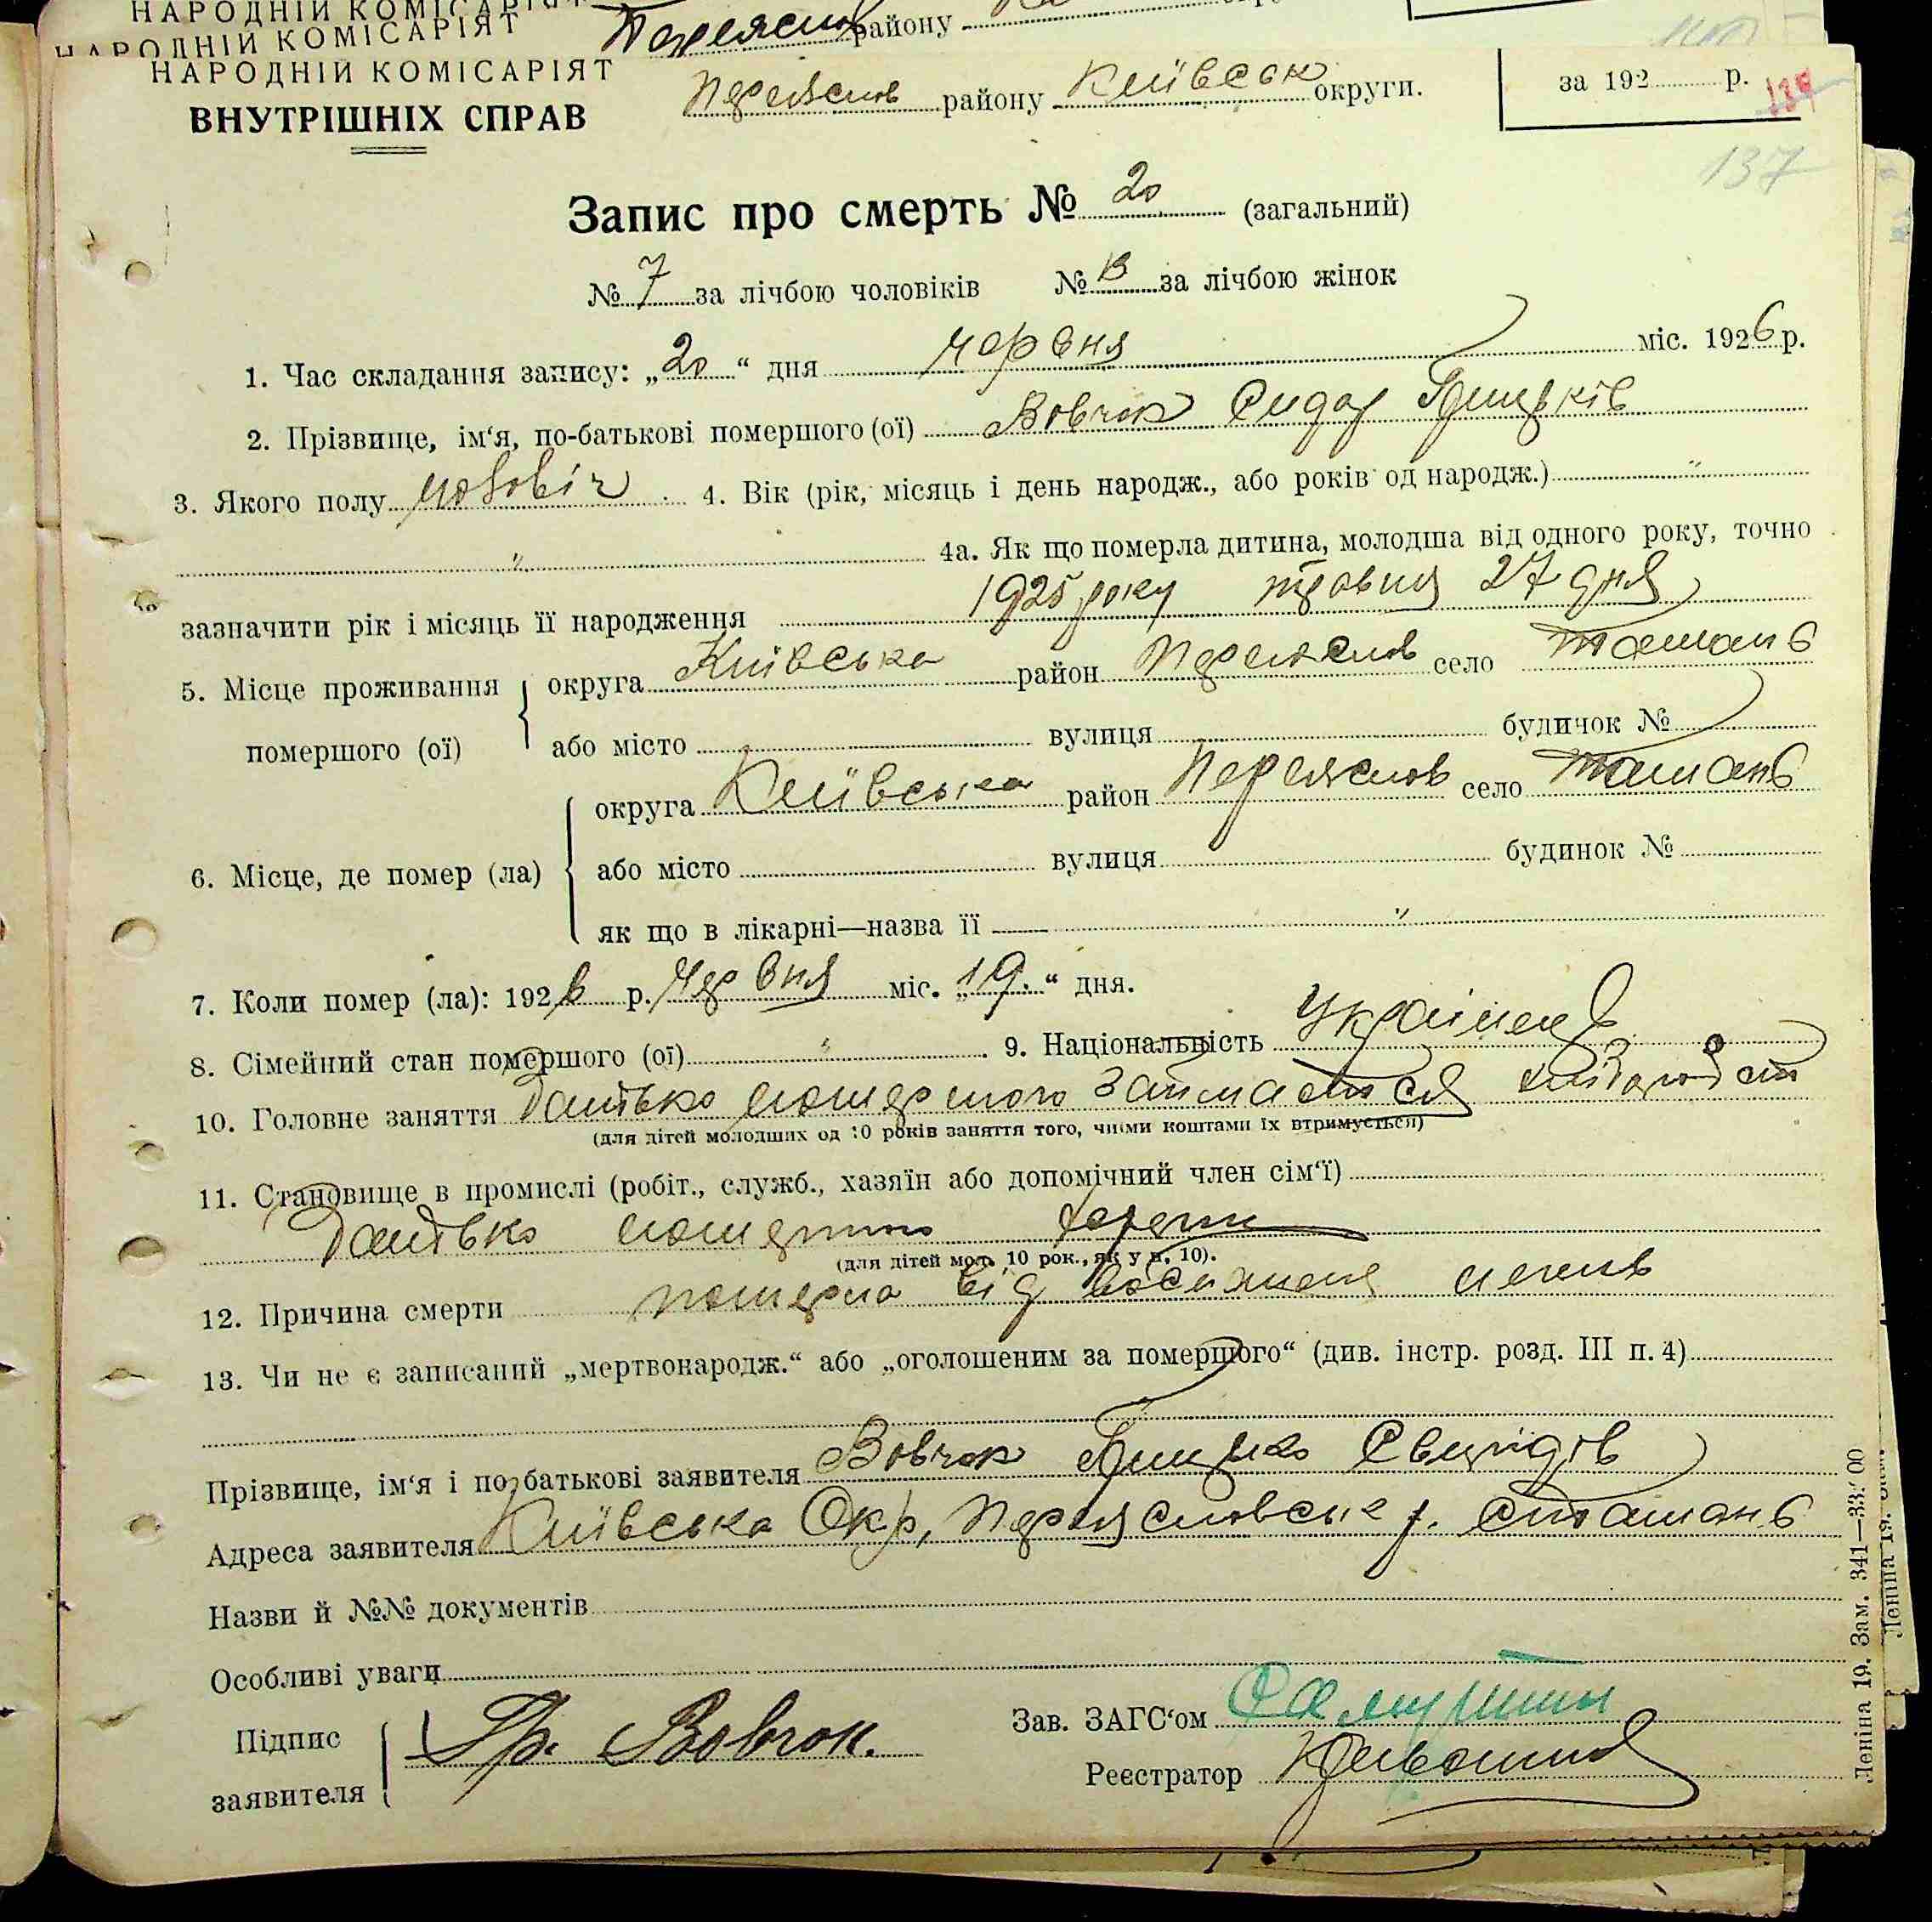 НАРОДНІЙ КОМІСАРІЯТ
НАРОДНІЙ КОМІСАРІЯТ
Переяслов району
НАРОДНІЙ КОМІСАРІЯТ
ВНУТРІШНІХ СПРАВ
Переяслов району Київськ округи.
за 192 р.
137
Запис про смерть № 20 (загальний)
№ 7 за лічбою чоловіків № 13 за лічбою жінок
1. Час складання запису: „20“ дня червня міс. 1926 р.
2. Прізвище, ім‘я, по-батькові помершого (ої) Вовчок Сидор Грицьків
3. Якого полу чоловіч. 4. Вік (рік, місяць і день народж., або років од народж.) "
" 4а. Як що померла дитина, молодша від одного року, точно
зазначити рік і місяць її народження 1925 року травня 27 дня
5. Місце проживання помершого (ої) округа Київська район Переяслов село Ташань
або місто вулиця будичок №
6. Місце, де помер (ла) округа Київська район Переяслов село Ташань
або місто вулиця будинок №
як що в лікарні—назва її "
7. Коли помер (ла): 1926 р. червня міс. „19.“ дня.
8. Сімейний стан помершого (ої) " . 9. Національність Українець
10. Головне заняття Батько помершого займається
(для дітей молодших од 10 років заняття того, чиїми коштами їх втримується)
11. Становище в промислі (робіт., служб., хазяїн або допомічний член сім‘ї)
Батько
(для дітей мол. 10 рок., як у п. 10).
12. Причина смерти від
13. Чи не є записаний „мертвонародж.“ або „оголошеним за помершого“ (див. інстр. розд. III п. 4)
Прізвище, ім‘я і по-батькові заявителя Вовчок Грицько Свиридів
Адреса заявителя Київська Окр, Переясловськ р. с Ташань
Назви й №№ документів
Особливі уваги
Підпис заявителя Гр. Вовчок.
Зав. ЗАГС‘ом
Реєстратор
Леніна 19. Зам. 341—33.